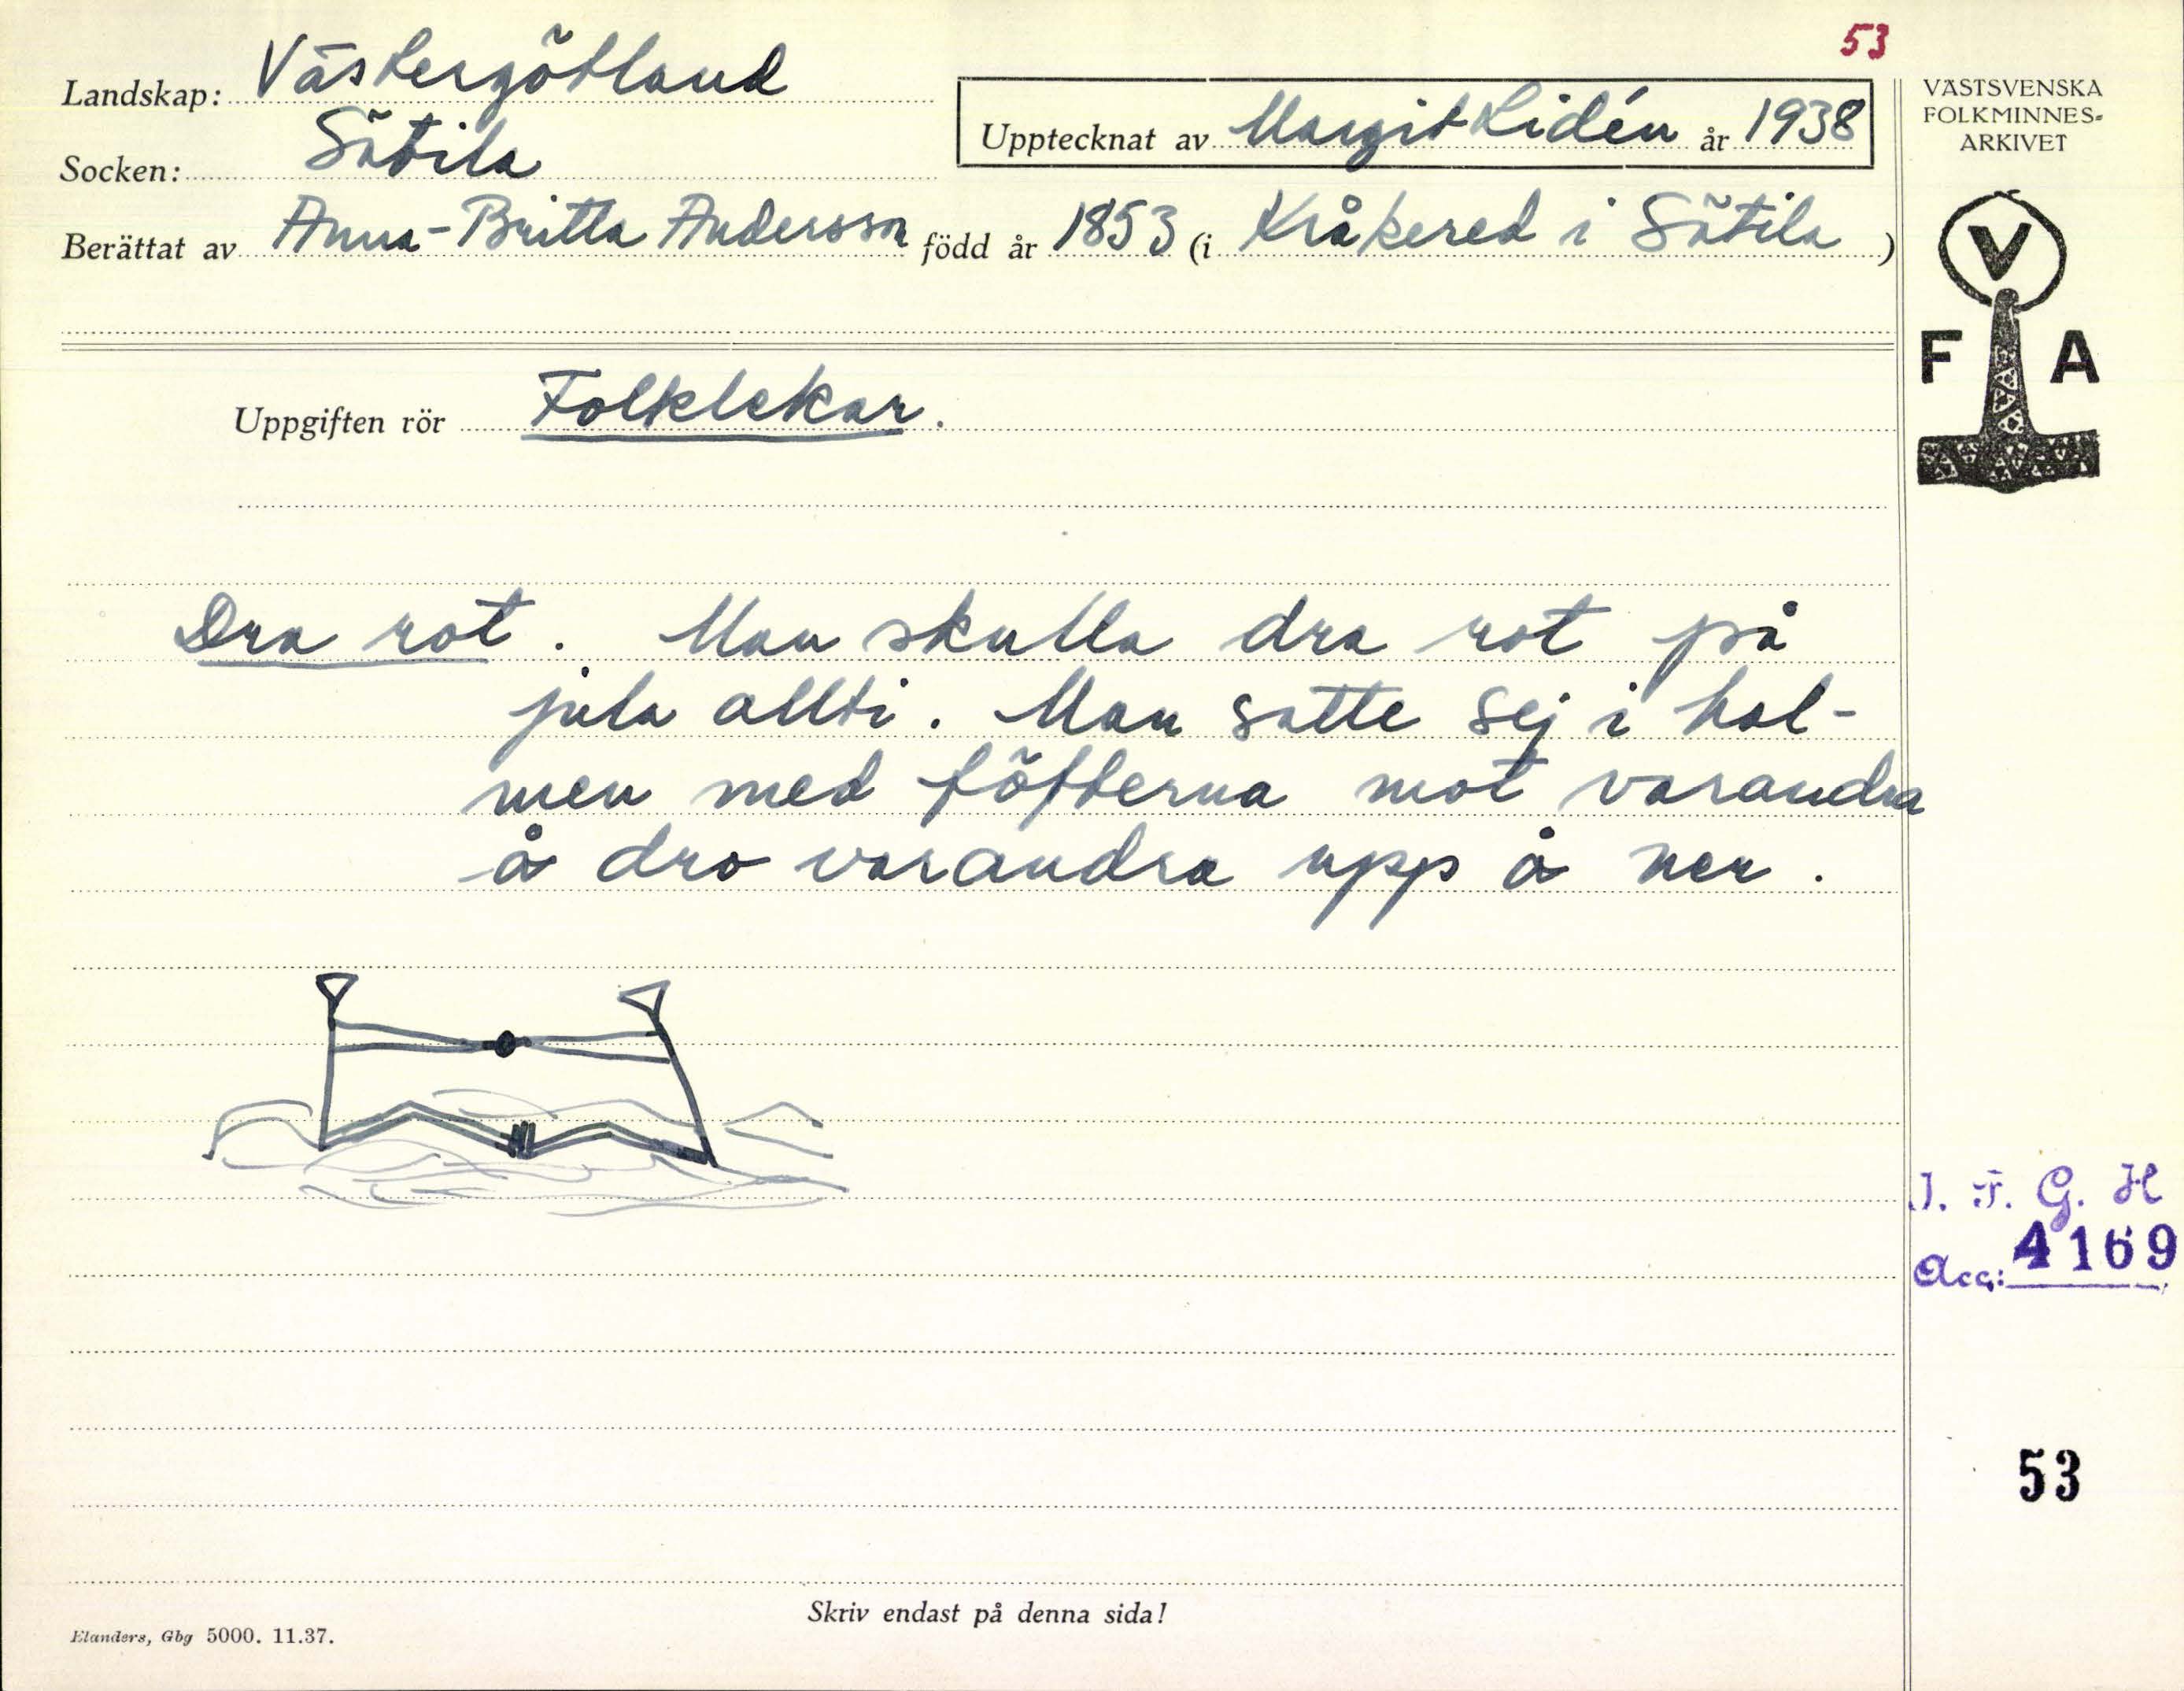 53
Landskap: Västergötland
Socken: Sätila
Upptecknat av Margit Lidén år 1938
Berättat av Anna-Britta Andersson född år 1853 (i Kråkered i Sätila)
VÄSTSVENSKA
FOLKMINNES-
ARKIVET
V
F A
Uppgiften rör Folklekar.
Dra rot. Man skulla dra rot på
jula allti. Man satte sej i hal-
men med föfterna mot varandra
å dro varandra upp å ner.
I. F. G. H
Acc: 4169
53
Skriv endast på denna sida!
Elanders, Gbg 5000. 11.37.